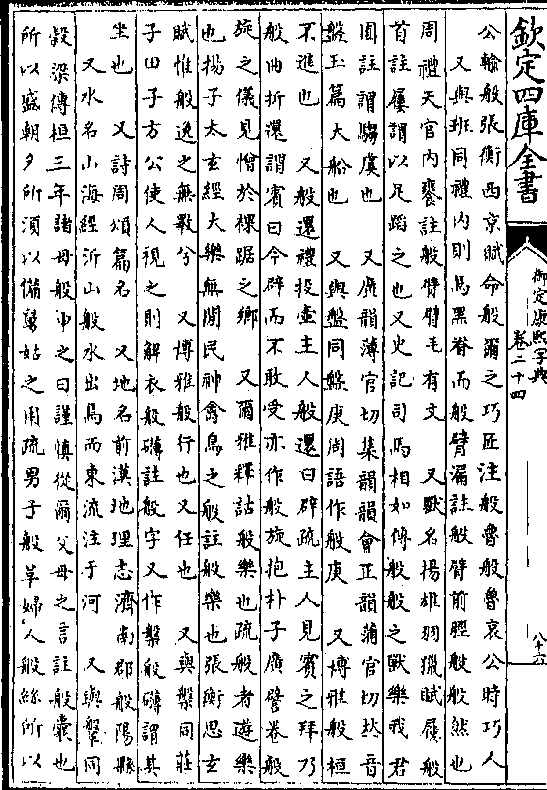 欽定四庫全書
御定康熙字典
卷二十四
八十六
公輸般張衡西京賦命般爾之巧匠注般魯般魯哀公時巧人
又與班同禮內則馬黑脊而般臂漏註般臂前脛般般然也
周禮天官內饔註般臂臂毛有文　又獸名揚雄羽獵賦履般
首註屨謂以足蹈之也又史記司馬相如傳般般之獸樂我君
囿註謂騶虞也　又廣韻薄官切集韻韻會正韻蒲官切𠀤音
盤玉篇大船也　又與盤同盤庚周語作般庚　又博雅般桓
不進也　又般還禮投壺主人般還曰辟疏主人見賓之拜乃
般曲折還謂賓曰今辟而不敢受亦作般旋抱朴子廣譬卷般
旋之儀見憎於裸踞之鄉　又爾雅釋詁般樂也疏般者遊樂
也揚子太玄經大樂無間民神禽鳥之般註般樂也張衡思玄
賦惟般逸之無斁兮　又博雅般行也又任也　又與槃同莊
子田子方公使人視之則解衣般礴註般字又作槃般礴謂其
坐也　又詩周頌篇名　又地名前漢地理志濟南郡般陽縣
又水名山海經沂山般水出焉而東流注于河　又與鞶同
穀梁傳桓三年諸母般申之曰謹慎從爾父母之言註般囊也
所以盛朝夕所須以備舅姑之用疏男子般革婦人般絲所以